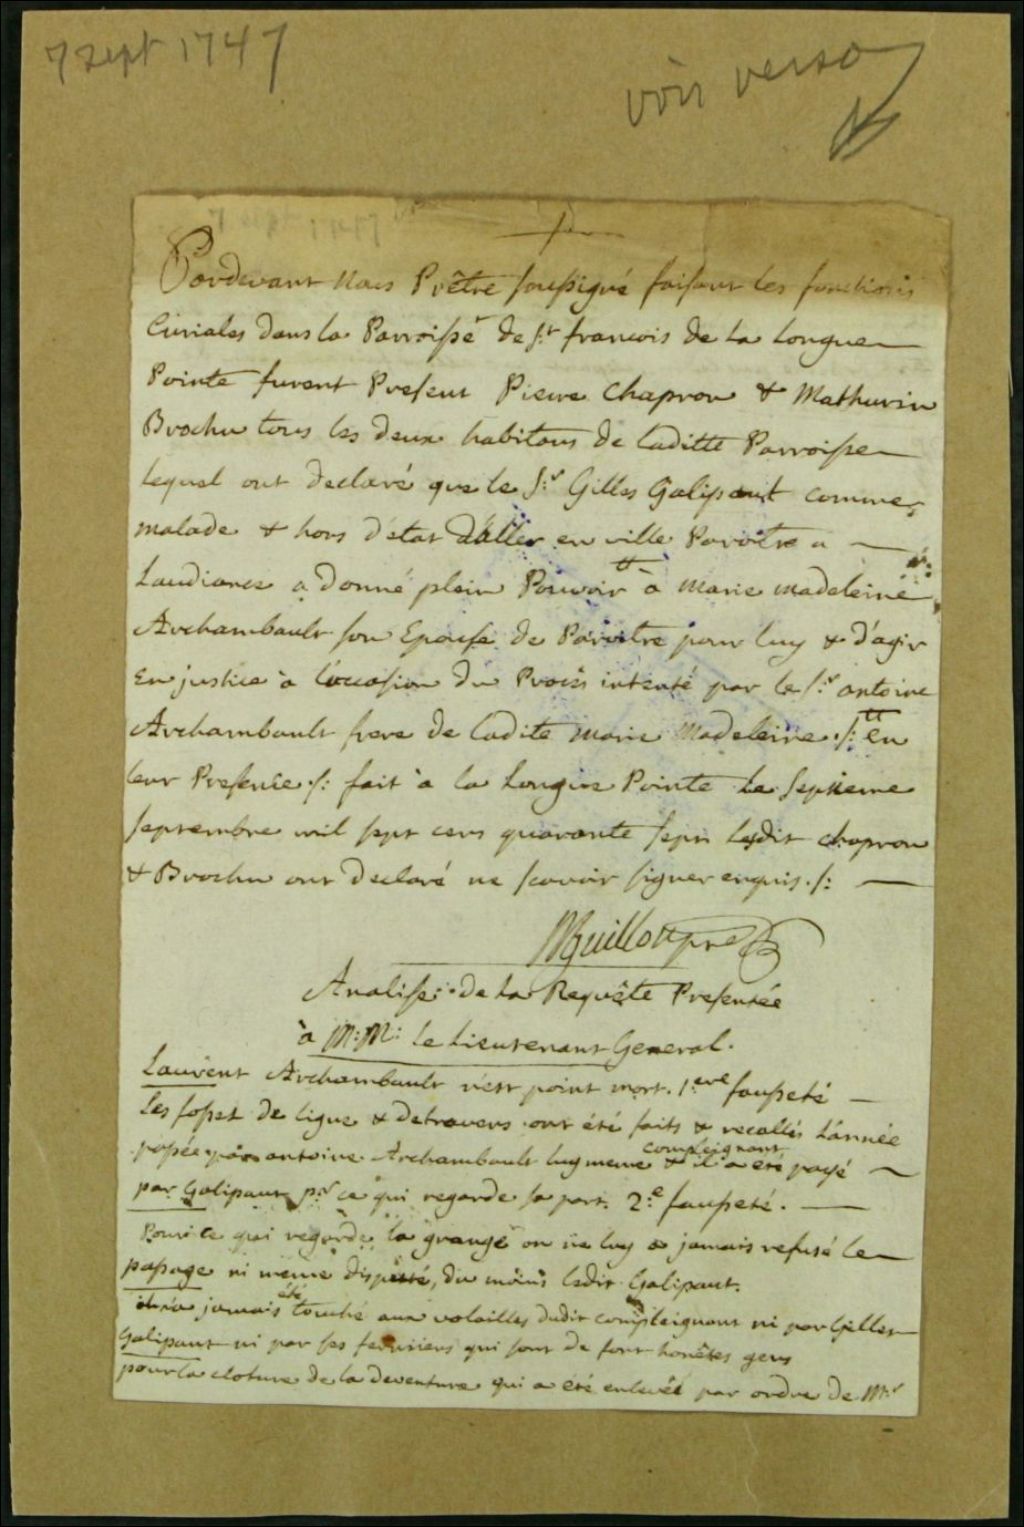 7 sept 1747
voir verso
Pardevant Nous Prêtre soussigné faisant les fonctions
Curiales dans la Parroisse de St francois de la Longue
Pointe furent Present Pierre Chapron & Mathurin
Brochu tous les deux habitans de laditte Parroisse
lequel ont declaré que le Sr Gilles Galipaut comme
malade & hors d'état d'aller en ville Paroitre a
Laudiance a donné plein Pouvoir à marie madeleine
Archambault son Epouse de Paroitre pour luy & d'agir
En justice à l'occasion du Procès intenté par le Sr antoine
Archambault frere de ladite marie Madeleine /: en
leur Presence /: fait à la Longue Pointe Le Septieme
septembre mil sept cens quarante sept lesdit chapron
& Brochu ont declaré ne scavoir signer enquis /:
Guillon pre
Analise de la Requête Presentée
à M: M: le Lieutenant General.
Laurent Archambault n'est point mort. 1ere fausseté
Les fossez de ligne & detravers ont été faits & recallés L'année
compleignant
passée par antoine Archambault luy meme & il a été payé
par Galipaut pr ce qui regarde sa part. 2e fausseté.
Pour ce qui regarde la grange on ne luy a jamais refusé le
passage ni meme disputé, du moins ledit Galipaut.
été
jamais touché aux volailles dudit compleignant ni par Gilles
Galipaut ni par ses fermiers qui sont de fort honêtes gens
pour la cloture de la deventure qui a été enlevée par ordre de Mr